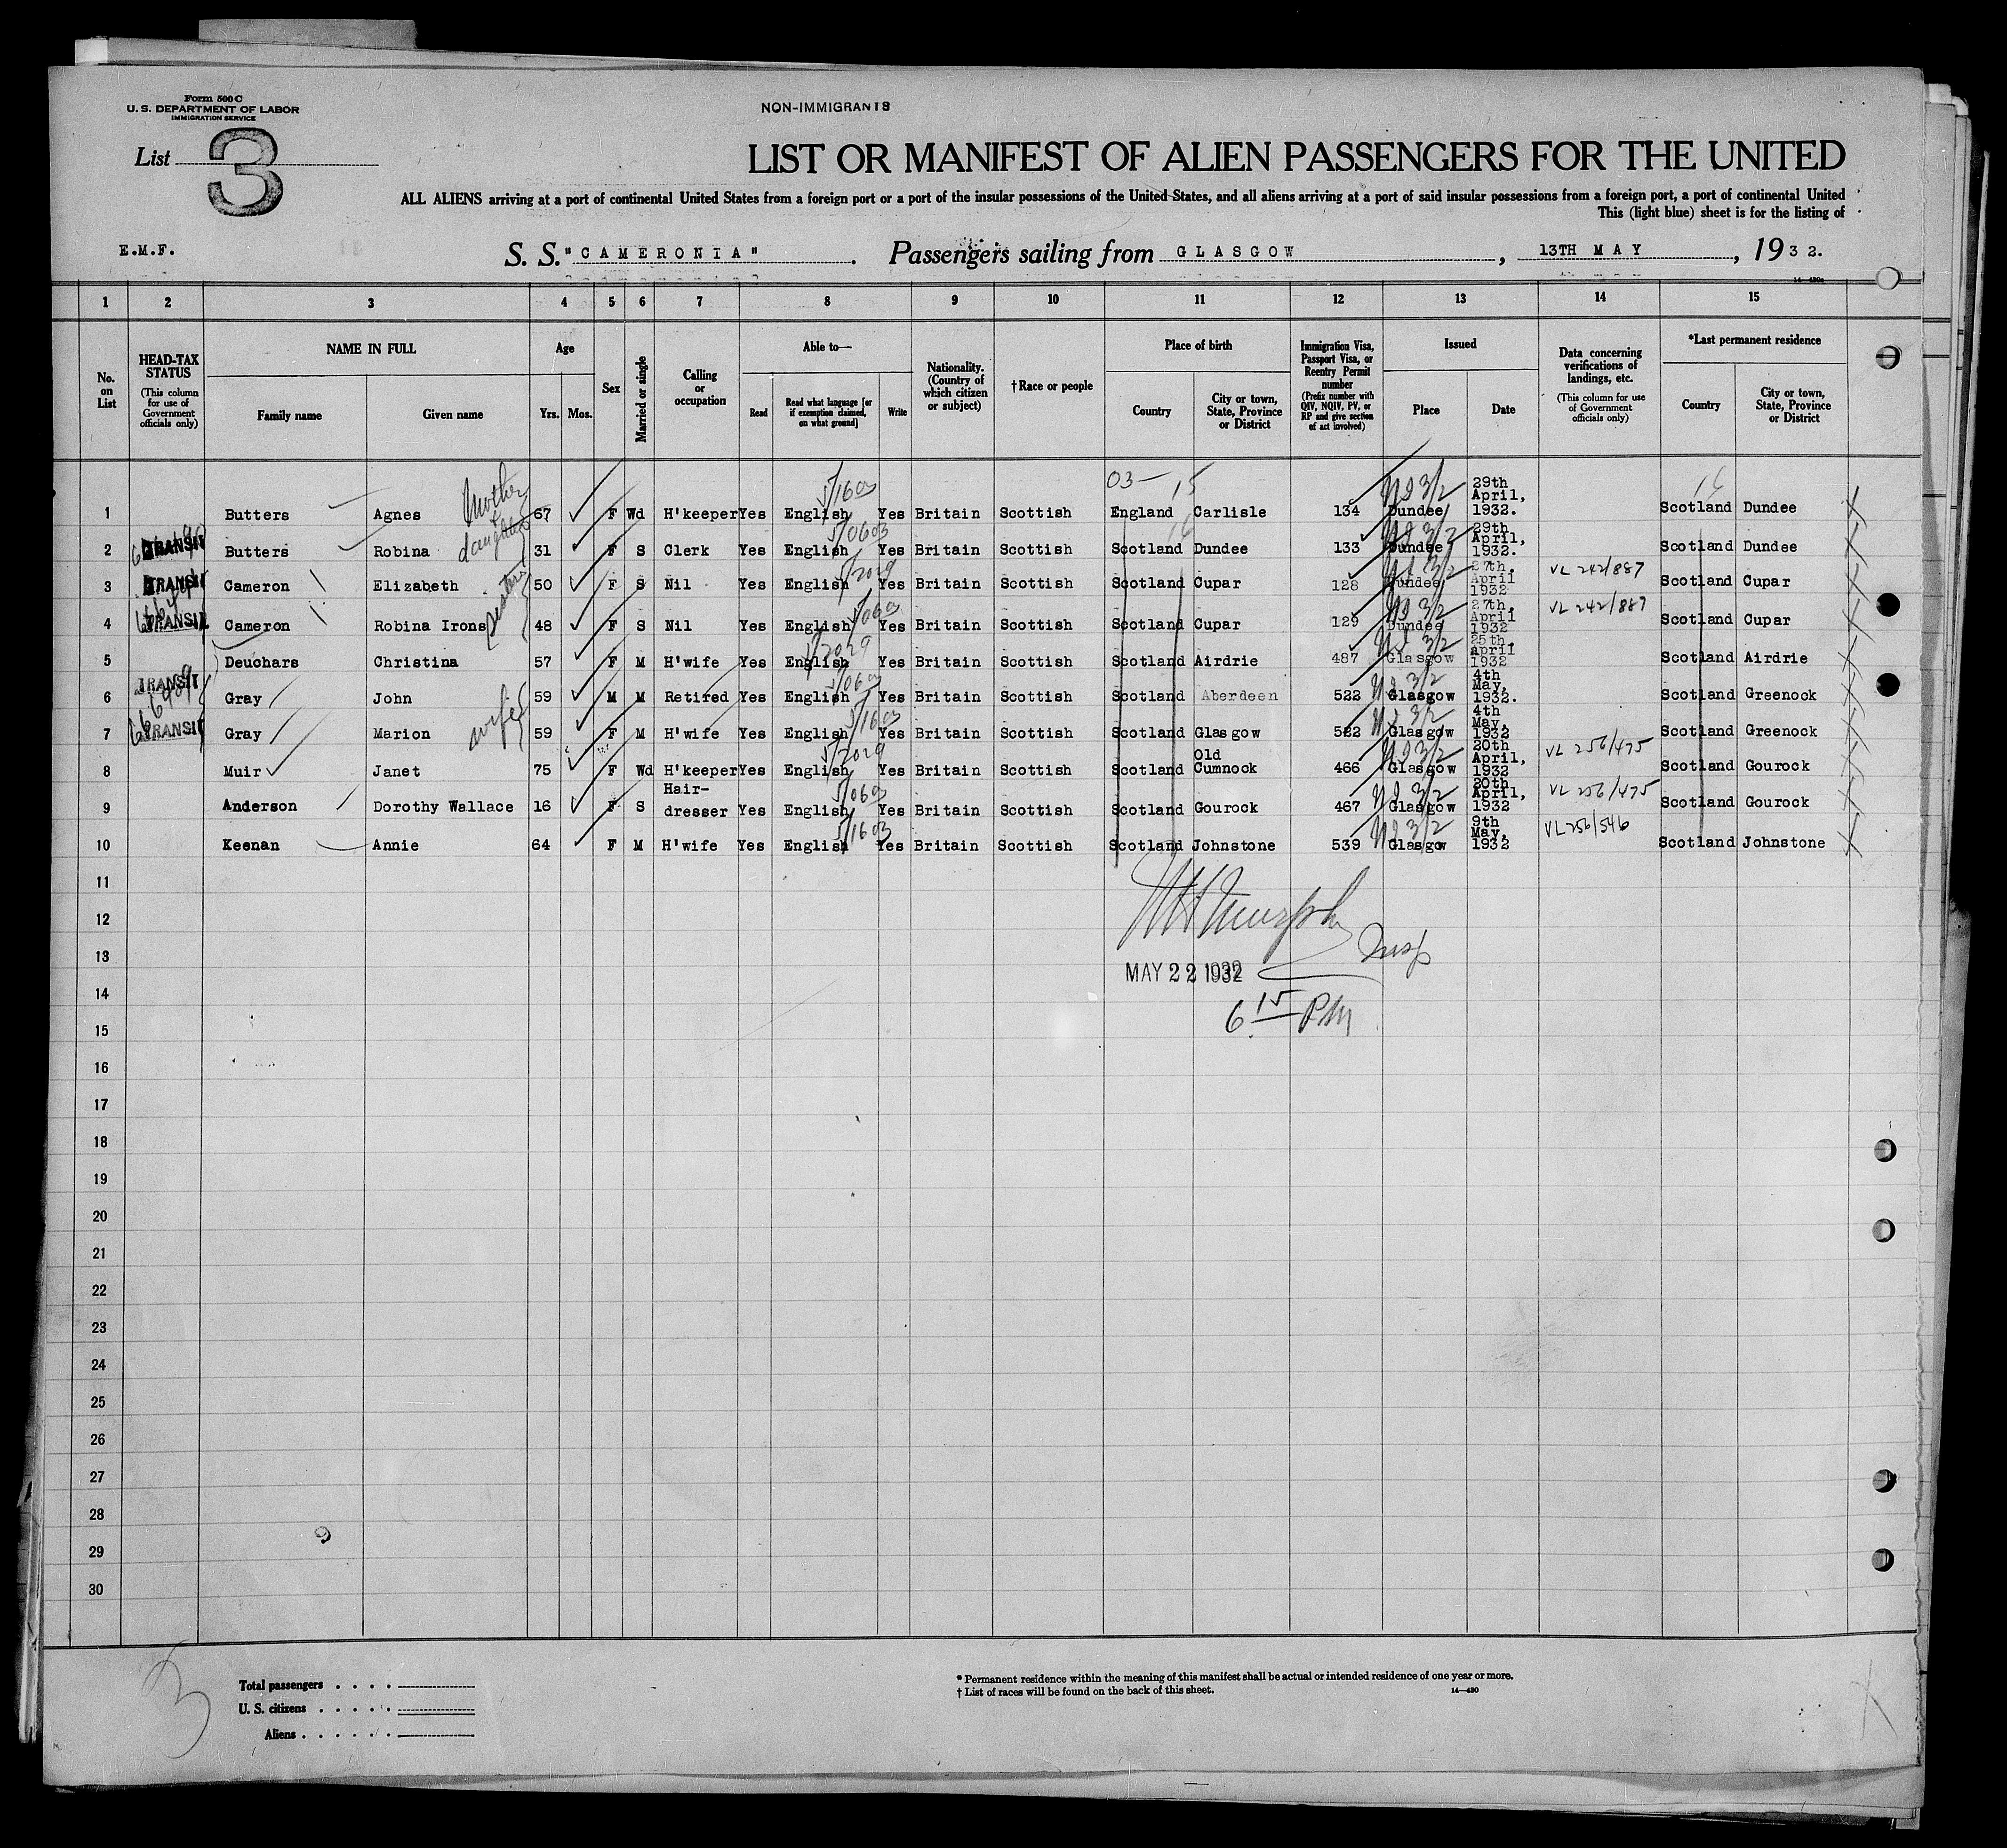 Form 500 C
U. S. DEPARTMENT OF LABOR
IMMIGRATION SERVICE
NON-IMMIGRANTS
List 3
LIST OR MANIFEST OF ALIEN PASSENGERS FOR THE UNITED
ALL ALIENS arriving at a port of continental United States from a foreign port or a port of the insular possessions of the United States, and all aliens arriving at a port of said insular possessions from a foreign port, a port of continental United
This (light blue) sheet is for the listing of
E.M.F. S. S. "CAMERONIA". Passengers sailing from GLASGOW, 13TH MAY, 1932.
1 2 3 4 5 6 7 8 9 10 11 12 13 14 15
No. on List
HEAD-TAX STATUS (This column for use of Government officials only)
NAME IN FULL Family name Given name
Age Yrs. Mos.
Sex
Married or single
Calling or occupation
Able to— Read Read what language [or if exemption claimed, on what ground] Write
Nationality. (Country of which citizen or subject)
†Race or people
Place of birth Country City or town, State, Province or District
Immigration Visa, Passport Visa, or Reentry Permit number (Prefix number with QIV, NQIV, PV, or RP and give section of act involved)
Issued Place Date
Data concerning verifications of landings, etc. (This column for use of Government officials only)
*Last permanent residence Country City or town, State, Province or District
1 Butters Agnes Mother 67 F Wd H'keeper Yes English Yes Britain Scottish England Carlisle 134 Dundee 29th April, 1932. Scotland Dundee
2 TRANSIT Butters Robina daughter 31 F S Clerk Yes English Yes Britain Scottish Scotland Dundee 133 Dundee 29th April, 1932. Scotland Dundee
3 TRANSIT Cameron Elizabeth sisters 50 F S Nil Yes English Yes Britain Scottish Scotland Cupar 128 Dundee 27th, April 1932 VL 242/887 Scotland Cupar
4 TRANSIT Cameron Robina Irons 48 F S Nil Yes English Yes Britain Scottish Scotland Cupar 129 Dundee 27th, April 1932 VL 242/887 Scotland Cupar
5 Deuchars Christina 57 F M H'wife Yes English Yes Britain Scottish Scotland Airdrie 487 Glasgow 25th, april 1932 Scotland Airdrie
6 TRANSIT Gray John 59 M M Retired Yes English Yes Britain Scottish Scotland Aberdeen 522 Glasgow 4th May, 1932. Scotland Greenock
7 TRANSIT Gray Marion wife 59 F M H'wife Yes English Yes Britain Scottish Scotland Glasgow 522 Glasgow 4th May, 1932 Scotland Greenock
8 Muir Janet 75 F Wd H'keeper Yes English Yes Britain Scottish Scotland Old Cumnock 466 Glasgow 20th April, 1932 VL 256/475 Scotland Gourock
9 Anderson Dorothy Wallace 16 F S Hair-dresser Yes English Yes Britain Scottish Scotland Gourock 467 Glasgow 20th April, 1932 VL 256/475 Scotland Gourock
10 Keenan Annie 64 F M H'wife Yes English Yes Britain Scottish Scotland Johnstone 539 Glasgow 9th May, 1932 VL 256/546 Scotland Johnstone
11
12
13 Insp
MAY 22 1932
14
6 15 PM
15
16
17
18
19
20
21
22
23
24
25
26
27
28
29
30
3
Total passengers
U. S. citizens
Aliens
* Permanent residence within the meaning of this manifest shall be actual or intended residence of one year or more.
† List of races will be found on the back of this sheet. 14—430